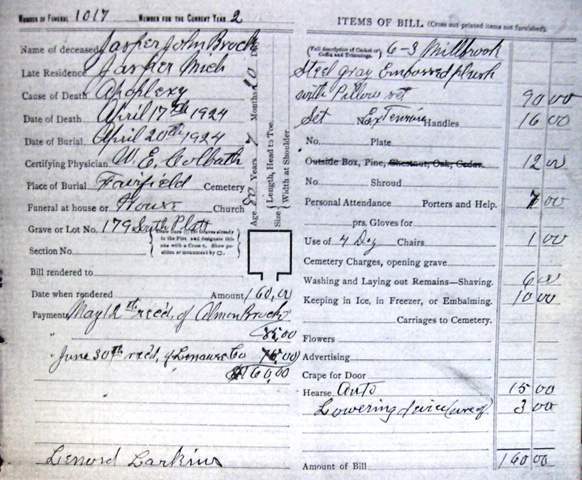 NUMBER OF FUNERAL 1017 NUMBER FOR THE CURRENT YEAR 2
Name of deceased Jasper John Brock
Late Residence Jasper Mich
Cause of Death Apoplexy
Date of Death April 17th 1924
Date of Burial April 20th 1924
Certifying Physician W. E. Colbath
Place of Burial Fairfield Cemetery
Funeral at house or House Church
Grave or Lot No. 179 South Platt
Section No.
Bill rendered to
Date when rendered Amount 160.00
Payments May 12th rec'd. of Almon Brock
85.00
June 30th rec'd. of Lenawee Co 75.00
$160.00
Lenord Larkins
Age Years Months Days
Length, Head to Toe.
Size Width at Shoulder
ITEMS OF BILL (Cross out printed items not furnished)
(Full description of Casket or Coffin and Trimmings) 6-3 Millbrook
Steel gray Embossed plush
with Pillow set 90 00
Set Handles 16 00
No. Plate
Outside Box, Pine, Chestnut, Oak, Cedar. 12 00
No. Shroud
Personal Attendance Porters and Help. 7 00
prs. Gloves for
Use of 4 Dz Chairs 1 00
Cemetery Charges, opening grave
Washing and Laying out Remains—Shaving. 6 00
Keeping in Ice, in Freezer, or Embalming. 10 00
Carriages to Cemetery.
Flowers
Advertising
Crape for Door
Hearse Auto 15 00
Lowering device (use of) 3 00
Amount of Bill 160 00